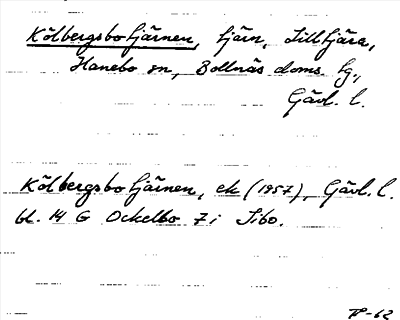 Kölbergsbotjärnen, tjärn, Lilltjära,
Hanebo sn, Bollnäs doms. tg.,
Gävl. l.
Kölbergsbotjärnen, ek (1957), Gävl. l.
bl. 14 G Ockelbo 7 i Sibo.
-62